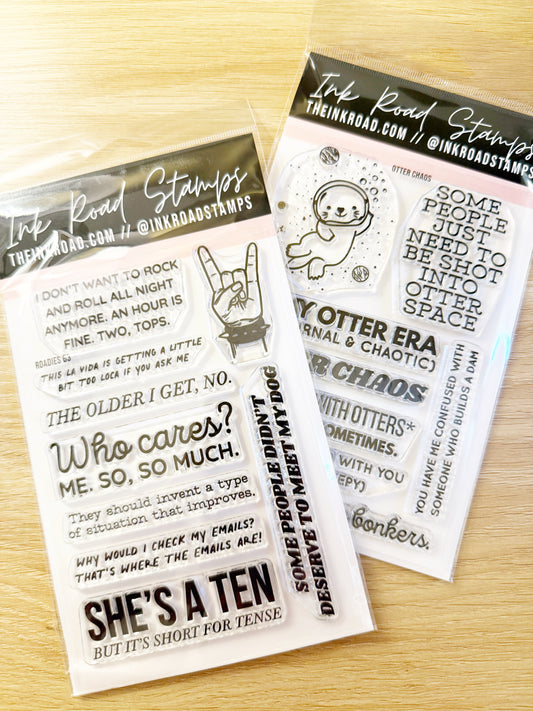 Ink Road Stamps
THEINKROAD.COM // @INKROADSTAMPS
I DON'T WANT TO ROCK
AND ROLL ALL NIGHT
ANYMORE. AN HOUR IS
FINE. TWO, TOPS.
ROADIES
THIS LA VIDA IS GETTING A LITTLE
BIT TOO LOCA IF YOU ASK ME
THE OLDER I GET, NO.
Who cares?
ME. SO, SO MUCH.
They should invent a type
of situation that improves.
WHY WOULD I CHECK MY EMAILS?
THAT'S WHERE THE EMAILS ARE!
SHE'S A TEN
BUT IT'S SHORT FOR TENSE
SOME PEOPLE DIDN'T
DESERVE TO MEET MY DOG
Ink Road Stamps
THEINKROAD.COM // @INKROADSTAMPS
OTTER CHAOS
SOME
PEOPLE
JUST
NEED TO
BE SHOT
INTO
OTTER
SPACE
OTTER ERA
& CHAOTIC)
CHAOS
WITH OTTERS*
SOMETIMES.
WITH YOU
YOU HAVE ME CONFUSED WITH
SOMEONE WHO BUILDS A DAM
Bonkers.